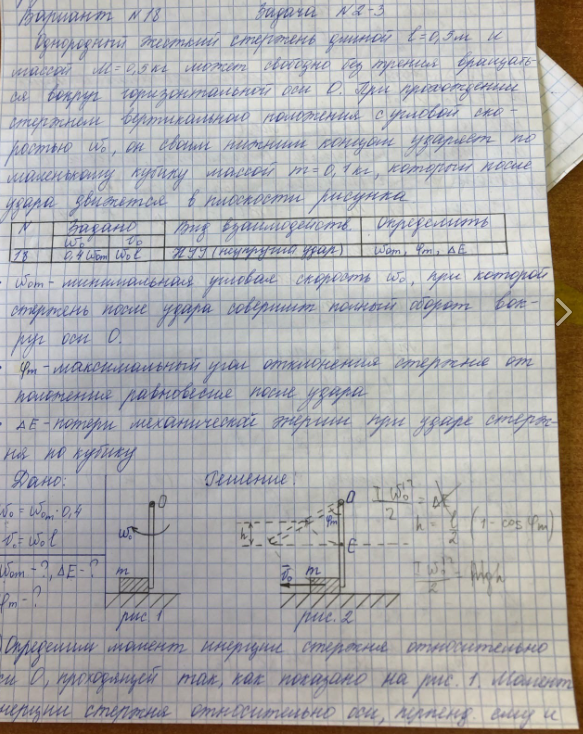 Вариант N 18 Задача N 2-3
Однородный жесткий стержень длиной l=0,5м и
массой M=0,5кг может свободно без трения вращать-
ся вокруг горизонтальной оси О. При прохождении
стержнем вертикального положения с угловой ско-
ростью ω₀, он своим нижним концом ударяет по
маленькому кубику массой m=0,1кг, который после
удара движется в плоскости рисунка
N Задано Вид взаимодейств. Определить
ω₀ v₀
18 0,4ω₀m ω₀l НУУ (неупругий удар) ω₀m, φm, ΔE
ω₀m - минимальная угловая скорость ω₀, при которой
стержень после удара совершит полный оборот вок-
руг оси О.
φm - максимальный угол отклонения стержня от
положения равновесия после удара
ΔE - потери механической энергии при ударе стерж-
ня по кубику
Дано: Решение:
ω₀=ω₀m·0,4
v₀=ω₀l
ω₀m-?, ΔE-?
φm-?
O
ω₀
m
рис 1
O
φm
h
C
v₀ m
рис. 2
I ω₀²/2 = ΔE
h = l/2 (1 - cos φm)
I ω₀²/2 = Mgh
Определим момент инерции стержня относительно
си О, проходящей так, как показано на рис. 1. Момент
нерции стержня относительно оси, перпенд. ему и